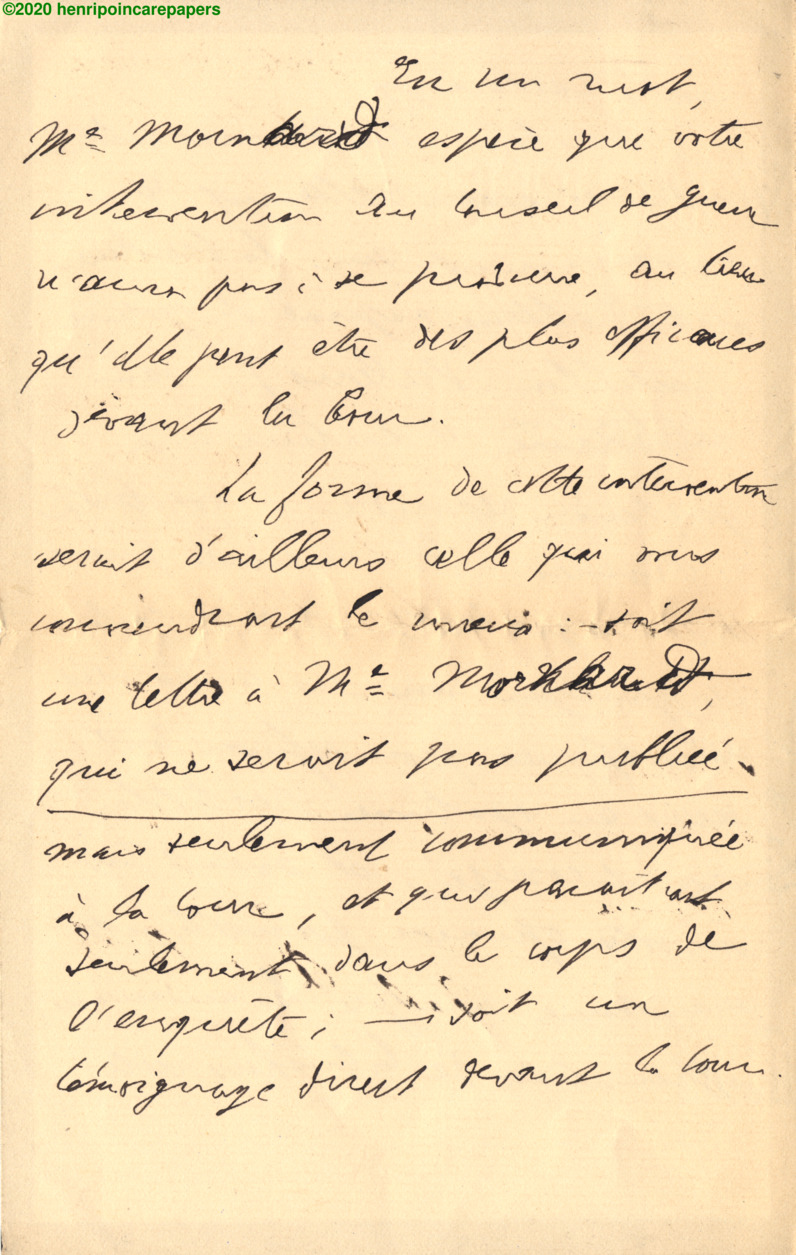 ©2020 henripoincarepapers
En un mot,
Me Mornard espère que votre
intervention au Conseil de guerre
n'aura pas à se produire, au lieu
qu'elle peut être des plus efficaces
devant la Cour.
La forme de cette intervention
serait d'ailleurs celle qui vous
conviendrait le mieux : – soit
une lettre à Me Mornard,
qui ne serait pas publiée
mais seulement communiquée
à la Cour, et qui paraîtrait
seulement dans le corps de
l'enquête ; – soit un
témoignage direct devant la Cour.